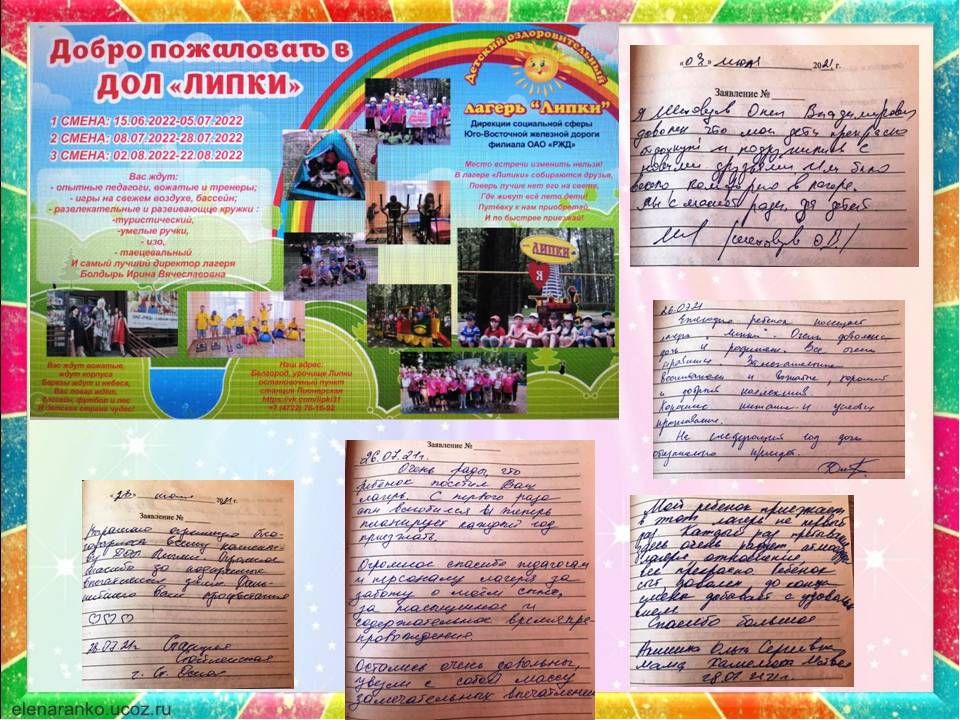 Добро пожаловать в
ДОЛ «ЛИПКИ»
1 СМЕНА: 15.06.2022-05.07.2022
2 СМЕНА: 08.07.2022-28.07.2022
3 СМЕНА: 02.08.2022-22.08.2022
Вас ждут:
- опытные педагоги, вожатые и тренеры;
- игры на свежем воздухе, бассейн;
- развлекательные и развивающие кружки :
-туристический,
-умелые ручки,
- изо,
- танцевальный
И самый лучший директор лагеря
Болдырь Ирина Вячеславовна
Детский оздоровительный
лагерь "Липки"
Дирекции социальной сферы
Юго-Восточной железной дороги
филиала ОАО «РЖД»
Место встречи изменить нельзя!
В лагере «Липки» собираются друзья,
Поверь лучше нет его на свете,
Где живут всё лето дети!
Путёвку к нам приобретай
И по быстрее приезжай!
ЛИПКИ
Я
Вас ждут вожатые,
ждут корпуса
Березы ждут и небеса,
Вас повар ждет,
и лес
И детская страна чудес!
Наш адрес:
Белгород, урочище Липки
остановочный пункт
станция
https://vk.com/lipki31
+7 (4722) 76-16-92
«03» июля 2021 г.
Заявление №
Я Шеховцов Олег Владимирович
доволен что мои дети прекрасно
отдохнули и подружились с
новыми друзьями. Им было
весело, в лагере.
Мы с мамой рады для детей
/Шеховцов О.В./
26.07.21
Ежегодно ребенок посещает
лагерь "Липки". Очень довольны
дочь и родители. Все очень
нравится. Замечательные
воспитатели и вожатые, хорошие
и добрые наставления.
Хорошие питание и условия
проживание.
На следующий год дочь
обязательно приедет.
Заявление №
26.07.21г.
Очень рады, что
ребёнок посетил Ваш
лагерь. С первого раза
он влюбился и теперь
планирует каждый год
приезжать.
Огромное спасибо педагогам
и персоналу лагеря за
заботу о моём сыне,
за насыщенное и
содержательное времяпре-
провождение.
Остались очень довольны,
увезли с собой массу
замечательных впечатлений
«28» июля 2021г.
Заявление №
Выражаю огромную бла-
годарность всему коллекти-
ву ДОЛ Липки. Огромное
спасибо за подаренные
впечатления детям.
Вам процветания
28.07.21г.
г. Ст. Оскол
Мой ребенок приезжает
в этот лагерь не первый
раз. Каждый раз
здесь очень радует атмосфера
лагеря отношение
все прекрасно. Ребенок
сыт, доволен до конца
смены добывает с удоволь
ствием
Спасибо большое
Ольга Сергеевна
мама
28.07.2021г.
elenaranko.ucoz.ru